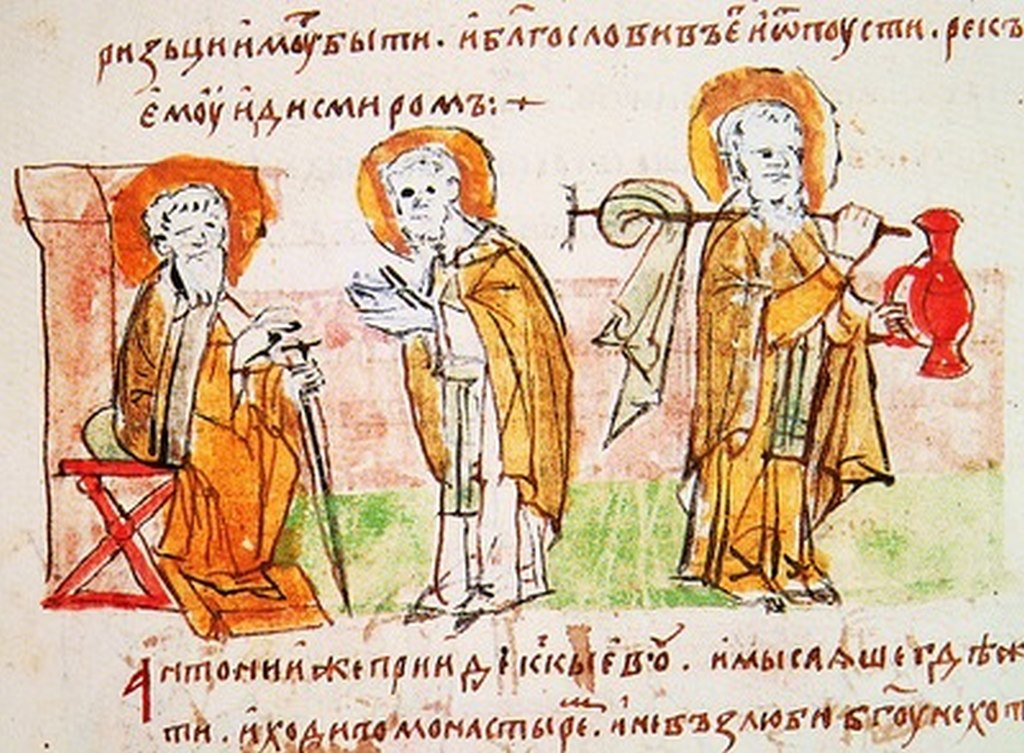 ризьци имоу быти. и бл҃гословивъ єго и ѿпоусти. рекъ
ємоу иди с миромъ:+
Антонии же прииде къ кыєвоу. и мысляше гдѣ ж
ти. и ходи по монастыре. и не възлюби б҃гоу не хот